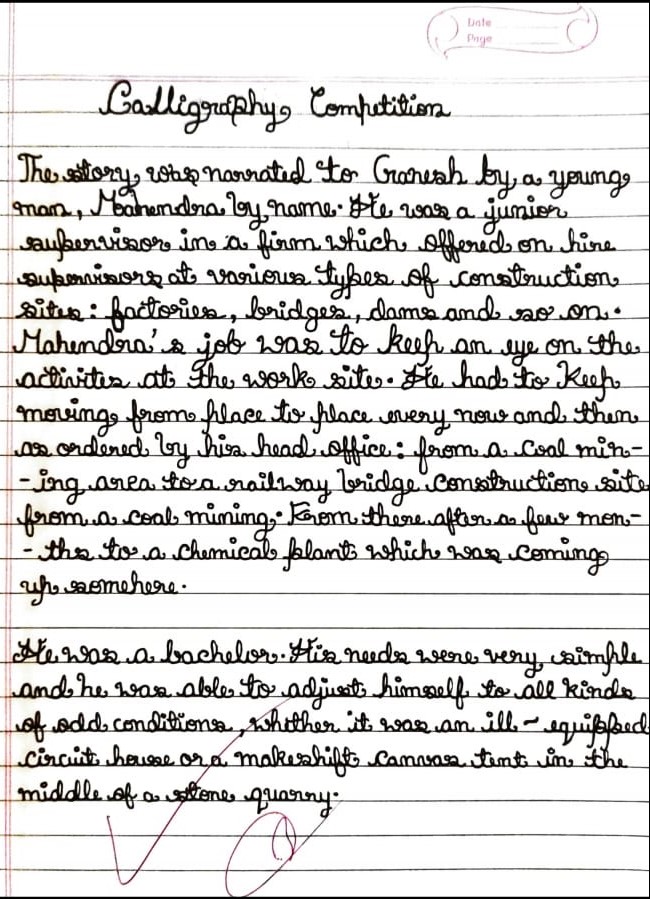 Date
Page
Calligraphy Competition
The story was narrated to Ganesh by a young
man, Mahendra by name. He was a junior
supervisor in a firm which offered on hire
supervisors at various types of construction
sites: factories, bridges, dams and so on.
Mahendra's job was to keep an eye on the
activites at the work site. He had to keep
moving from place to place every now and then
as ordered by his head office: from a coal min-
-ing area to a railway bridge construction site
from a coal mining. From there after a few mon-
-ths to a chemical plant which was coming
up somehere.
He was a bachelor. His needs were very simple
and he was able to adjust himself to all kinds
of odd conditions, whether it was an ill-equipped
circuit house or a makeshift canvas tent in the
middle of a stone quarry.